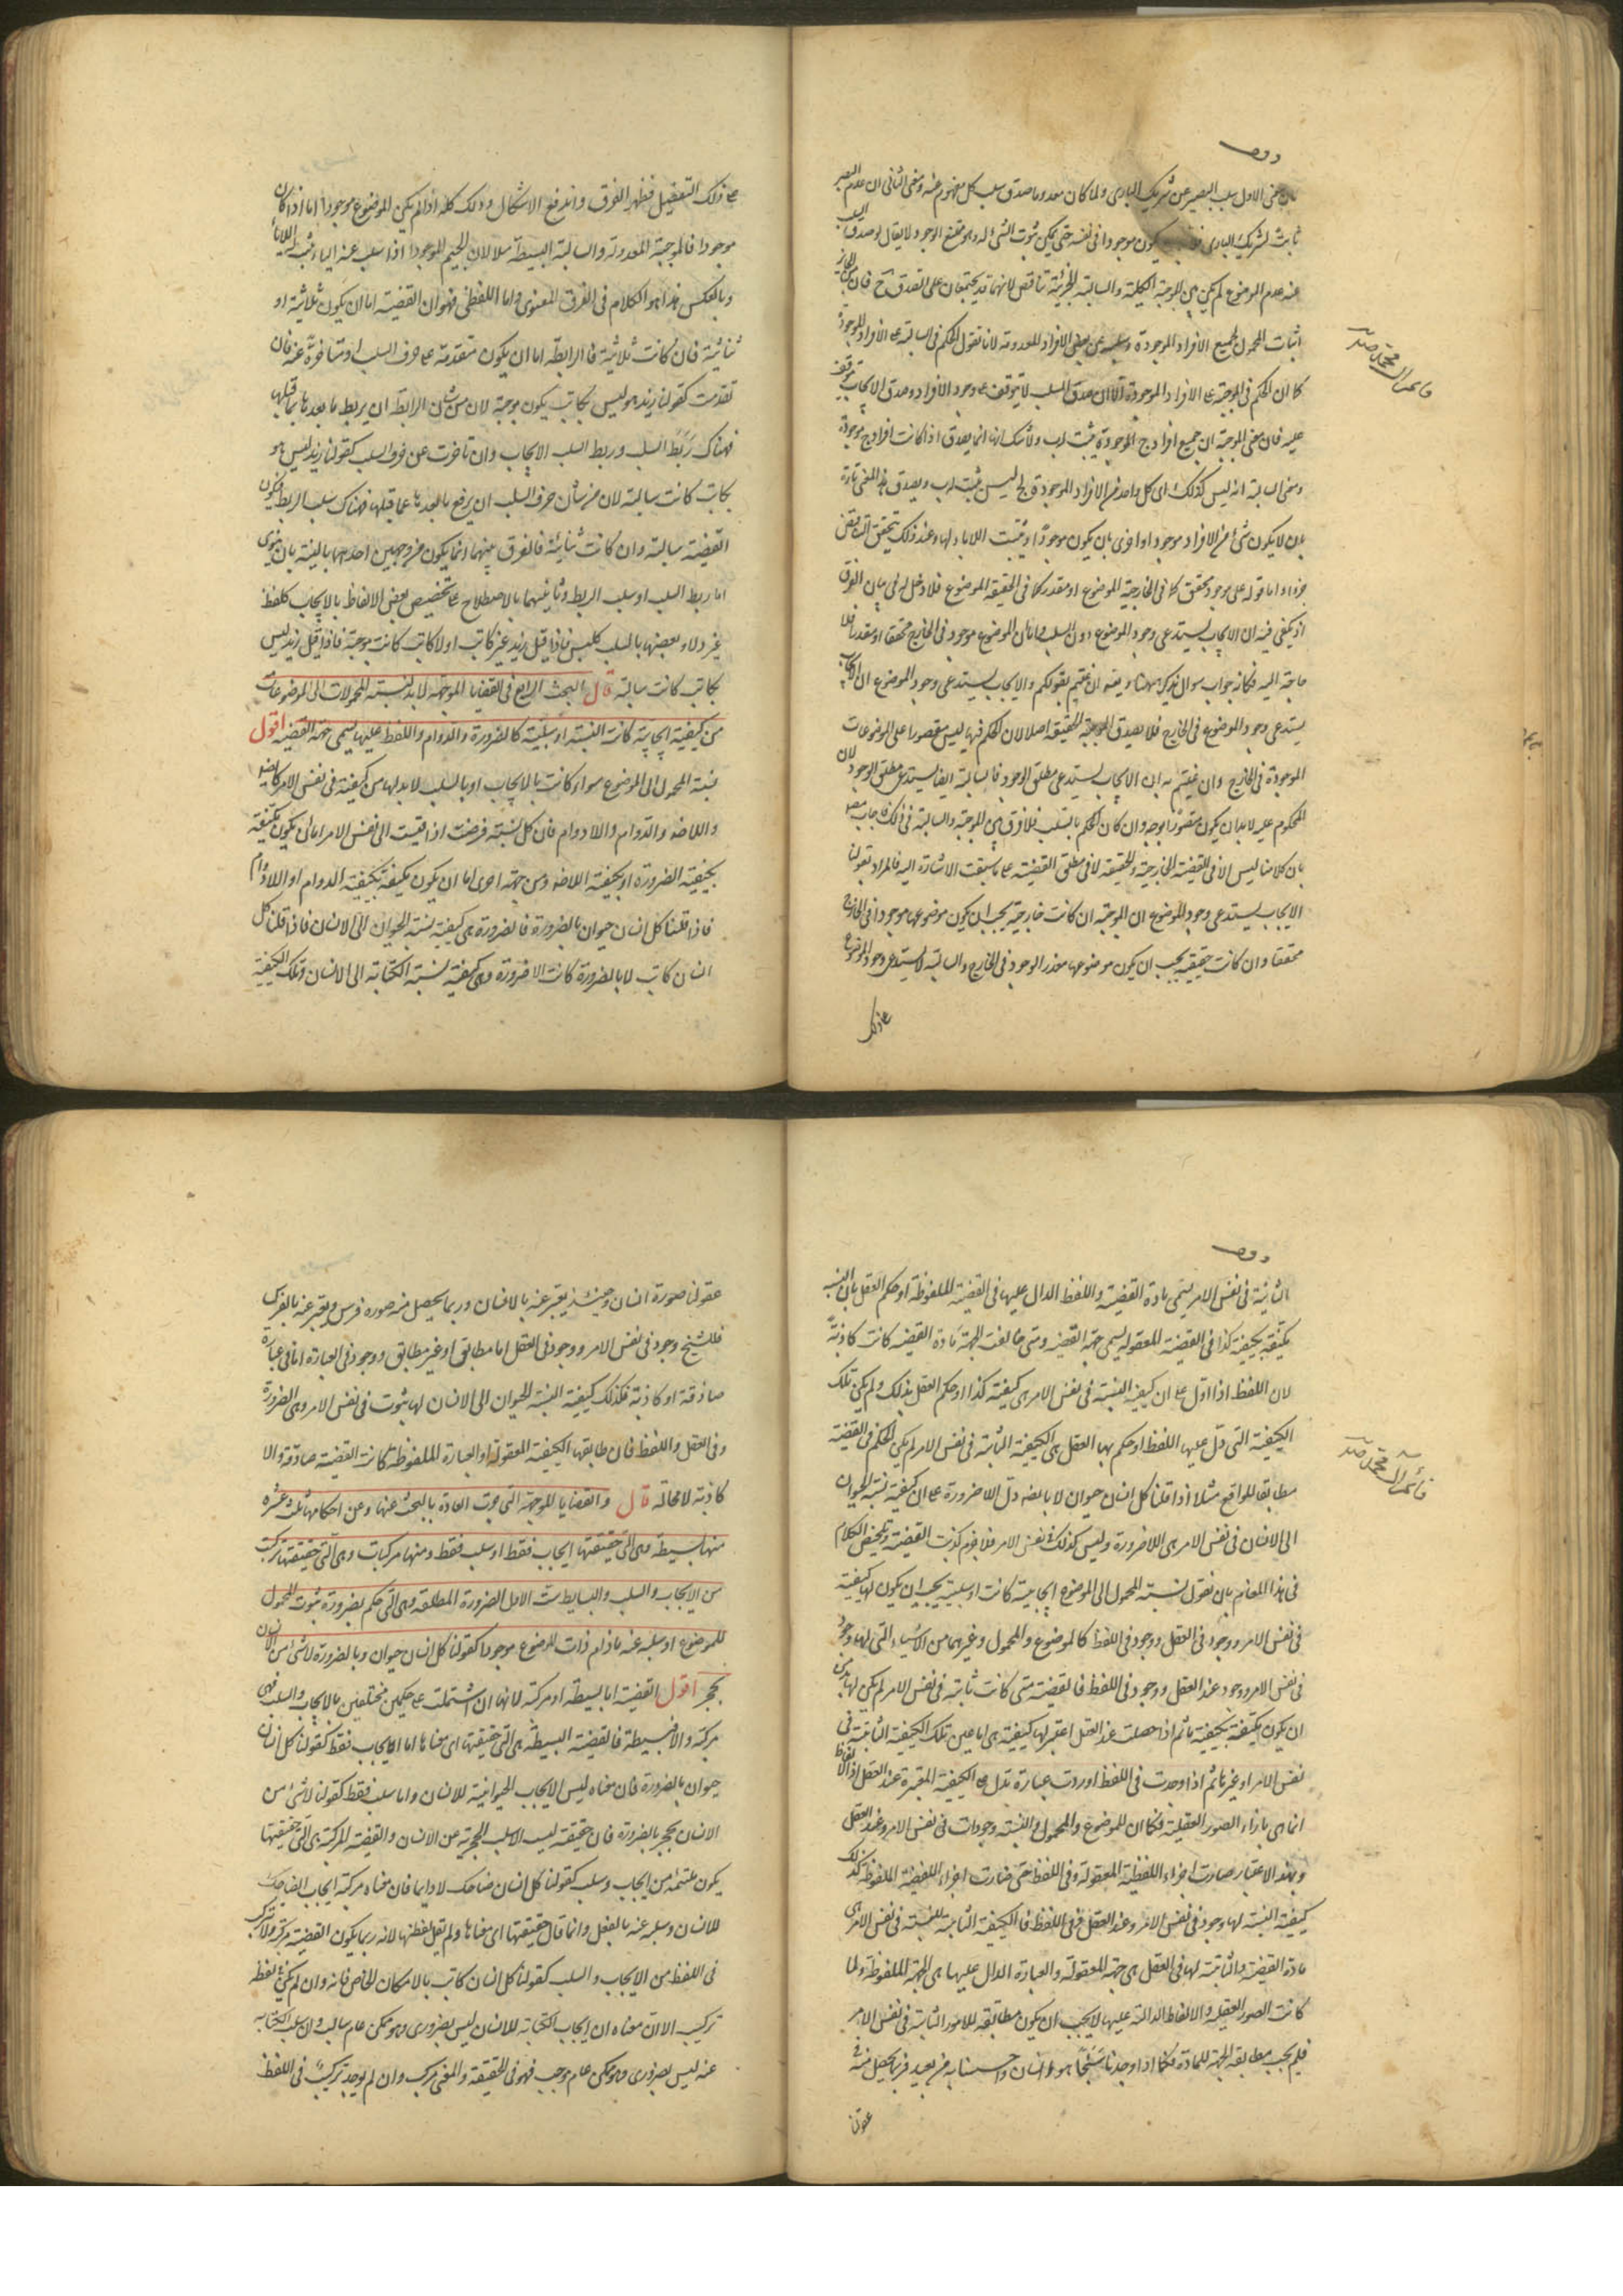 وقف
فان معنى الاول سلب البصر عن شريك البارى ولما كان معدوما صدق سلب كل مفهوم عنه ومعنى الثانى ان عدم البصر
ثابت لشريك البارى فلا بد يكون موجودا فى نفسه حتى يمكن ثبوت الشئ له وهو ممتنع الوجود لا يقال لو صدق السلب
عند عدم الموضوع لم يكن بين الموجبة الكلية والسالبة الجزئية تناقض لانهما قد يجتمعان على الصدق ح فان من الجائز
اثبات المحمول لجميع الافراد الموجودة وسلبه عن بعض الافراد المعدومة لانا نقول الحكم فى السالبة على الافراد الموجودة
كما ان الحكم فى الموجبة على الافراد الموجودة الا ان صدق السلب لا يتوقف على وجود الافراد وصدق الايجاب يتوقف
عليه فان معنى الموجبة ان جميع افراد ج الموجودة يثبت لها ب ولا شك انها انما يصدق اذا كانت افراد ج موجودة
ومعنى السالبة انه ليس كذلك اى كل واحد من الافراد الموجودة لج ليس يثبت له ب ويصدق هذا المعنى تارة
بان لا يكون شئ من الافراد موجودا واخرى بان يكون موجودا ويثبت اللاباء لها وعند ذلك يتحقق التناقض
جزءا واما قوله على موجود محقق كما فى الخارجية الموضوع او مقدر كما فى الحقيقة الموضوع فلا دخل له فى بيان الفرق
اذ يكفى فيه ان الايجاب يستدعى وجود الموضوع دون السلب واما ان الموضوع موجود فى الخارج محققا او مقدرا فلا
حاجة اليه فكانه جواب سوال يذكر ههنا ويقال ان عنيتم بقولكم والايجاب يستدعى وجود الموضوع ان الايجاب
يستدعى وجود الموضوع فى الخارج فلا يصدق الموجبة الحقيقة اصلا لان الحكم فيها ليس مقصورا على الموضوعات
الموجودة فى الخارج وان عنيتم به ان الايجاب يستدعى مطلق الوجود فالسالبة ايضا يستدعى مطلق الوجود لان
المحكوم عليه لابد ان يكون متصورا بوجه وان كان الحكم بالسلب فلا فرق بين الموجبة والسالبة فى ذلك فاجاب عنه
بان كلامنا ليس الا فى القضية الخارجية والحقيقة لا فى مطلق القضية على ما سبقت الاشارة اليه فالمراد بقولنا
الايجاب يستدعى وجود الموضوع ان الموجبة ان كانت خارجية يجب ان يكون موضوعها موجودا فى الخارج
محققا وان كانت حقيقية يجب ان يكون موضوعها مقدر الوجود فى الخارج والسالبة لا يستدعى وجود الموضوع
على ذلك
على ذلك التفصيل فظهر الفرق واندفع الاشكال وذلك كله اذا لم يكن الموضوع موجودا اما اذا كان
موجودا فالموجبة المعدولة والسالبة البسيطة متلازمان لان الجيم الموجود اذا سلب عنه الباء يثبت له اللاباء
وبالعكس هذا هو الكلام فى الفرق المعنوى واما اللفظى فهو ان القضية اما ان يكون ثلاثية او
ثنائية فان كانت ثلاثية فالرابطة اما ان يكون متقدمة على حرف السلب او متاخرة عنه فان
تقدمت كقولنا زيد هو ليس بكاتب يكون موجبة لان من شان الرابطة ان يربط ما بعدها بما قبلها
فهناك ربط السلب وربط السلب الايجاب وان تاخرت عن حرف السلب كقولنا زيد ليس هو
بكاتب كانت سالبة لان من شأن حرف السلب ان يرفع ما بعدها عما قبلها فهناك سلب الربط فيكون
القضية سالبة وان كانت ثنائية فالفرق بينهما انما يكون من وجهين احدهما بالنية بان ينوى
اما ربط السلب او سلب الربط وثانيهما بالاصطلاح على تخصيص بعض الالفاظ بالايجاب كلفظ
غير ولا وبعضها بالسلب كليس فاذا قيل زيد غير كاتب او لا كاتب كانت موجبة فاذا قيل زيد ليس
بكاتب كانت سالبة قال البحث الرابع فى القضايا الموجهة لابد لنسبة المحمولات الى الموضوعات
من كيفية ايجابية كانت النسبة او سلبية كالضرورة والدوام واللفظ عليها يسمى جهة القضية اقول
نسبة المحمول الى الموضوع سواء كانت بالايجاب او بالسلب لابد لها من كيفية فى نفس الامر كالضرورة
واللاضرورة والدوام واللا دوام فان كل نسبة فرضت اذا قيست الى نفس الامر اما ان يكون متكيفة
بكيفية الضرورة او بكيفية اللاضرورة ومن جهة اخرى اما ان يكون متكيفة بكيفية الدوام او اللادوام
فاذا قلنا كل انسان حيوان بالضرورة فالضرورة هى كيفية نسبة الحيوان الى الانسان فاذا قلنا كل
انسان كاتب لا بالضرورة كانت اللاضرورة هى كيفية نسبة الكتابة الى الانسان وتلك الكيفية
وقف
الثابتة فى نفس الامر يسمى مادة القضية واللفظ الدال عليها فى القضية الملفوظة او حكم العقل بان النسبة
متكيفة بكيفية كذا فى القضية المعقولة يسمى جهة القضية ومتى خالفت الجهة مادة القضية كانت كاذبة
لان اللفظ اذا دل على ان كيفية النسبة فى نفس الامر هى كيفية كذا او حكم العقل بذلك ولم يكن تلك
الكيفية التى دل عليها اللفظ او حكم بها العقل هى الكيفية الثابتة فى نفس الامر لم يكن الحكم فى القضية
مطابقا للواقع مثلا اذا قلنا كل انسان حيوان لا بالضرورة دل اللاضرورة على ان كيفية نسبة الحيوان
الى الانسان فى نفس الامر هى اللاضرورة وليس كذلك فى نفس الامر فلا جرم كذبت القضية وتلخيص الكلام
فى هذا المقام بان نقول نسبة المحمول الى الموضوع ايجابية كانت او سلبية يجب ان يكون لها كيفية
فى نفس الامر ووجود فى العقل ووجود فى اللفظ كالموضوع والمحمول وغيرهما من الاشياء التى لها وجود
فى نفس الامر ووجود عند العقل ووجود فى اللفظ فالقضية متى كانت ثابتة فى نفس الامر لم يكن لها بد من
ان يكون متكيفة بكيفية ما ثم اذا حصلت عند العقل اعتبر لها كيفية هى اما عين تلك الكيفية الثابتة فى
نفس الامر او غيرها ثم اذا وجدت فى اللفظ اوردت عبارة تدل على الكيفية المعتبرة عند العقل اذ الالفاظ
انما هى بازاء الصور العقلية فكما ان للموضوع والمحمول والنسبة وجودات فى نفس الامر وعند العقل
وبهذا الاعتبار صارت اجزاء اللقضية المعقولة وفى اللفظ حتى صارت اجزاء اللقضية الملفوظة كذلك
كيفية النسبة لها وجود فى نفس الامر وعند العقل وفى اللفظ فالكيفية الثابتة للنسبة فى نفس الامر هى
مادة القضية والثابتة لها فى العقل هى جهة المعقولة والعبارة الدال عليها هى الجهة الملفوظة ولما
كانت الصور العقلية والالفاظ الدالة عليها لا يجب ان يكون مطابقة للامور الثابتة فى نفس الامر
فلم يجب مطابقة الجهة للمادة فكما اذا وجدنا شبحا هو انسان واحسسنا به من بعيد فربما يحصل منه فى
عقولنا
عقولنا صورة انسان وحينئذ يعبر عنه بالانسان وربما يحصل منه صورة فرس ويعبر عنه بالفرس
فللشبح وجود فى نفس الامر ووجود فى العقل اما مطابق او غير مطابق ووجود فى العبارة اما فى عبارة
صادقة او كاذبة فكذلك كيفية النسبة الحيوان الى الانسان لها ثبوت فى نفس الامر وهى الضرورة
وفى العقل واللفظ فان طابقها الكيفية المعقولة او العبارة الملفوظة كانت القضية صادقة والا
كاذبة لا محالة قال والقضايا الموجهة التى جرت العادة بالبحث عنها وعن احكامها ثلث عشرة
منها بسيطة وهى التى حقيقتها ايجاب فقط او سلب فقط ومنها مركبات وهى التى حقيقتها تركبت
من الايجاب والسلب والبسايط ست الاول الضرورة المطلقة وهى التى حكم بضرورة ثبوت المحمول
للموضوع او سلبه عنه مادام ذات الموضوع موجودا كقولنا كل انسان حيوان وبالضرورة لا شئ من الانسان
بحجر اقول القضية اما بسيطة او مركبة لانها ان اشتملت على حكمين مختلفين بالايجاب والسلب فهى
مركبة والا فبسيطة فالقضية البسيطة هى التى حقيقتها اى معناها اما ايجاب فقط كقولنا كل انسان
حيوان بالضرورة فان معناه ليس الا ايجاب الحيوانية للانسان واما سلب فقط كقولنا لا شئ من
الانسان بحجر بالضرورة فان حقيقته ليست الا سلب الحجرية عن الانسان والقضية المركبة هى التى حقيقتها
يكون ملتئمة من ايجاب وسلب كقولنا كل انسان ضاحك لا دايما فان معناه مركبة ايجاب الضاحك
للانسان وسلبه عنه بالفعل وانما قال حقيقتها اى معناها ولم يقل لفظها لانه ربما يكون القضية مركبة ولا تركب
فى اللفظ من الايجاب والسلب كقولنا كل انسان كاتب بالامكان الخاص فانه وان لم يكن فى لفظه
تركيب الا ان معناه ان ايجاب الكتابة للانسان ليس بضرورى وهو ممكن عام سالب وان سلب الكتابة
عنه ليس بضرورى وهو ممكن عام موجب فهو فى الحقيقة والمعنى مركب وان لم يوجد تركيب فى اللفظ